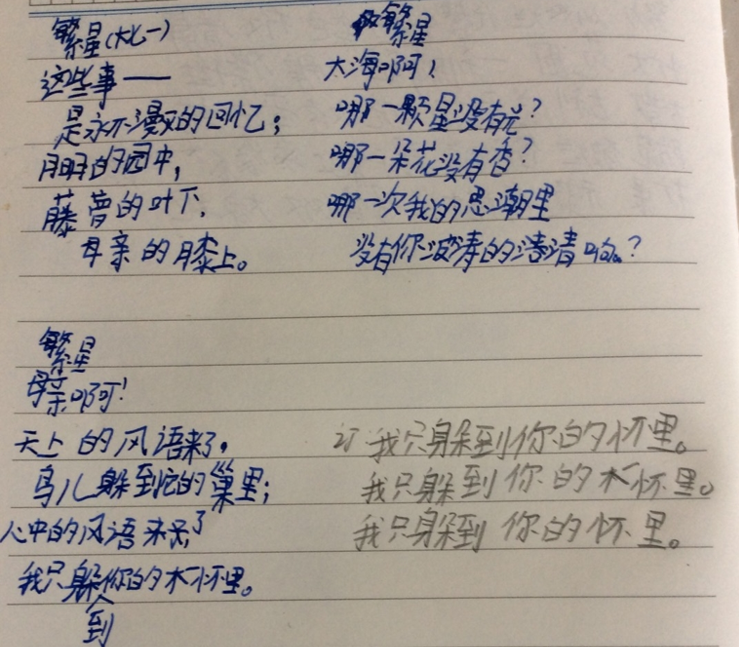 繁星(七一)
这些事——
是永不漫灭的回忆;
月明的园中,
藤萝的叶下,
母亲的膝上。
繁星
大海啊!
哪一颗星没有光?
哪一朵花没有香?
哪一次我的思潮里
没有你波涛的清响?
繁星
母亲啊!
天上的风雨来了。
鸟儿躲到它的巢里;
心中的风雨来了
我只躲到你的怀里。
订.我只躲到你的怀里。
我只躲到你的怀里。
我只躲到你的怀里。